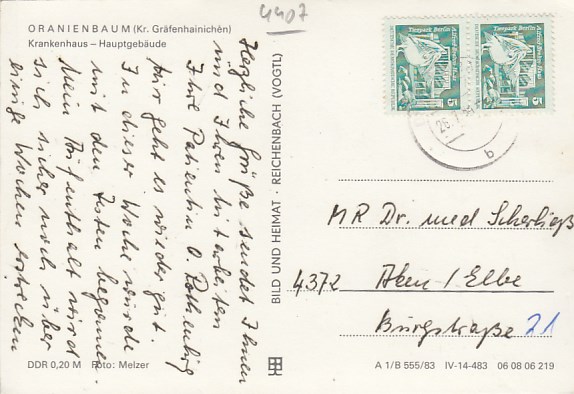 4407
ORANIENBAUM (Kr. Gräfenhainichen)
Krankenhaus – Hauptgebäude
Herzliche Grüße sendet Ihnen
und Ihren Mitarbeitern
Ihre Patientin O.
Mir geht es wieder gut.
In dieser Woche wurde
mit den begonnen.
Mein Aufenthalt wird
sich sicher noch über
einige Wochen erstrecken
DDR 0,20 M Foto: Melzer
BILD UND HEIMAT · REICHENBACH (VOGTL)
Tierpark Berlin
Alfred-Brehm-Haus
5
Tierpark Berlin
Alfred-Brehm-Haus
5
b
MR Dr. med Scherließ
4372 Aken / Elbe
Burgstraße 21
A 1/B 555/83 IV-14-483 06 08 06 219